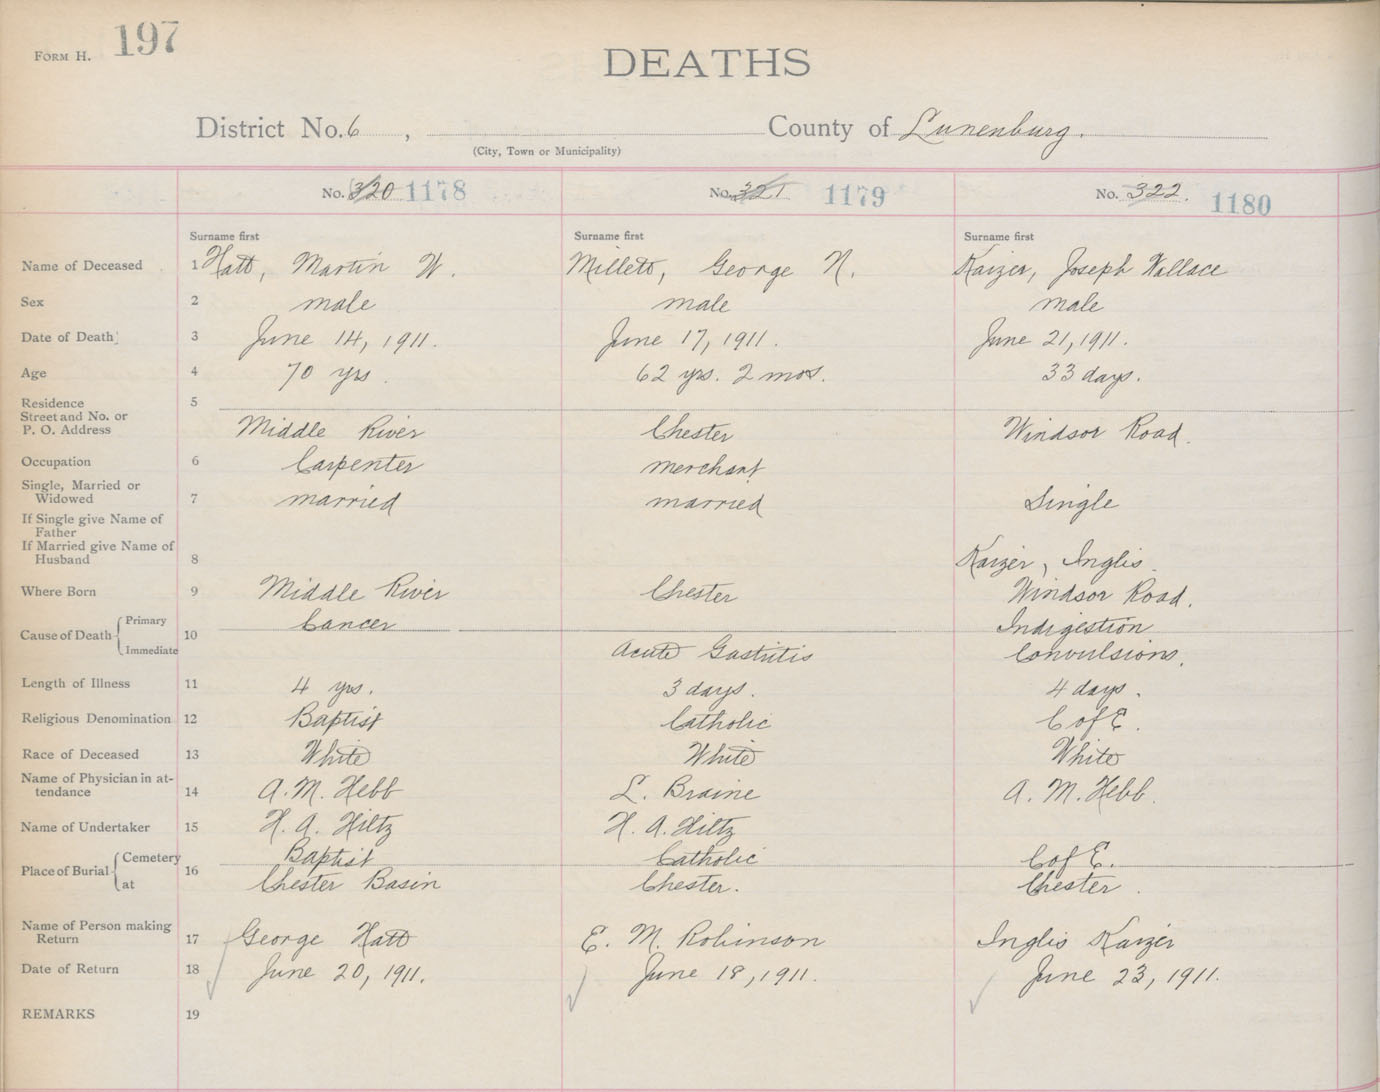 FORM H. 197
DEATHS
District No. 6 , County of Lunenburg.
(City, Town or Municipality)
No. 320 1178 No. 321 1179 No. 322. 1180
Surname first Surname first Surname first
Name of Deceased 1 Hatt, Martin W. Millett, George N. Kaizer, Joseph Wallace
Sex 2 male male male
Date of Death 3 June 14, 1911. June 17, 1911. June 21, 1911.
Age 4 70 yrs. 62 yrs. 2 mos. 33 days.
Residence 5
Street and No. or
P. O. Address Middle River Chester Windsor Road.
Occupation 6 Carpenter merchant
Single, Married or
Widowed 7 married married Single
If Single give Name of
Father
If Married give Name of
Husband 8 Kaizer, Inglis.
Where Born 9 Middle River Chester Windsor Road.
Cause of Death 10 Primary Cancer Indigestion
Immediate Acute Gastritis Convulsions.
Length of Illness 11 4 yrs. 3 days. 4 days.
Religious Denomination 12 Baptist Catholic C of E.
Race of Deceased 13 White White White
Name of Physician in at-
tendance 14 A. M. Hebb L. Braine A. M. Hebb.
Name of Undertaker 15 H. A. Hiltz H. A. Hiltz
Place of Burial 16 Cemetery Baptist Catholic C of E.
at Chester Basin Chester. Chester.
Name of Person making
Return 17 George Hatt E. M. Robinson Inglis Kaizer
Date of Return 18 June 20, 1911. June 18, 1911. June 23, 1911.
REMARKS 19